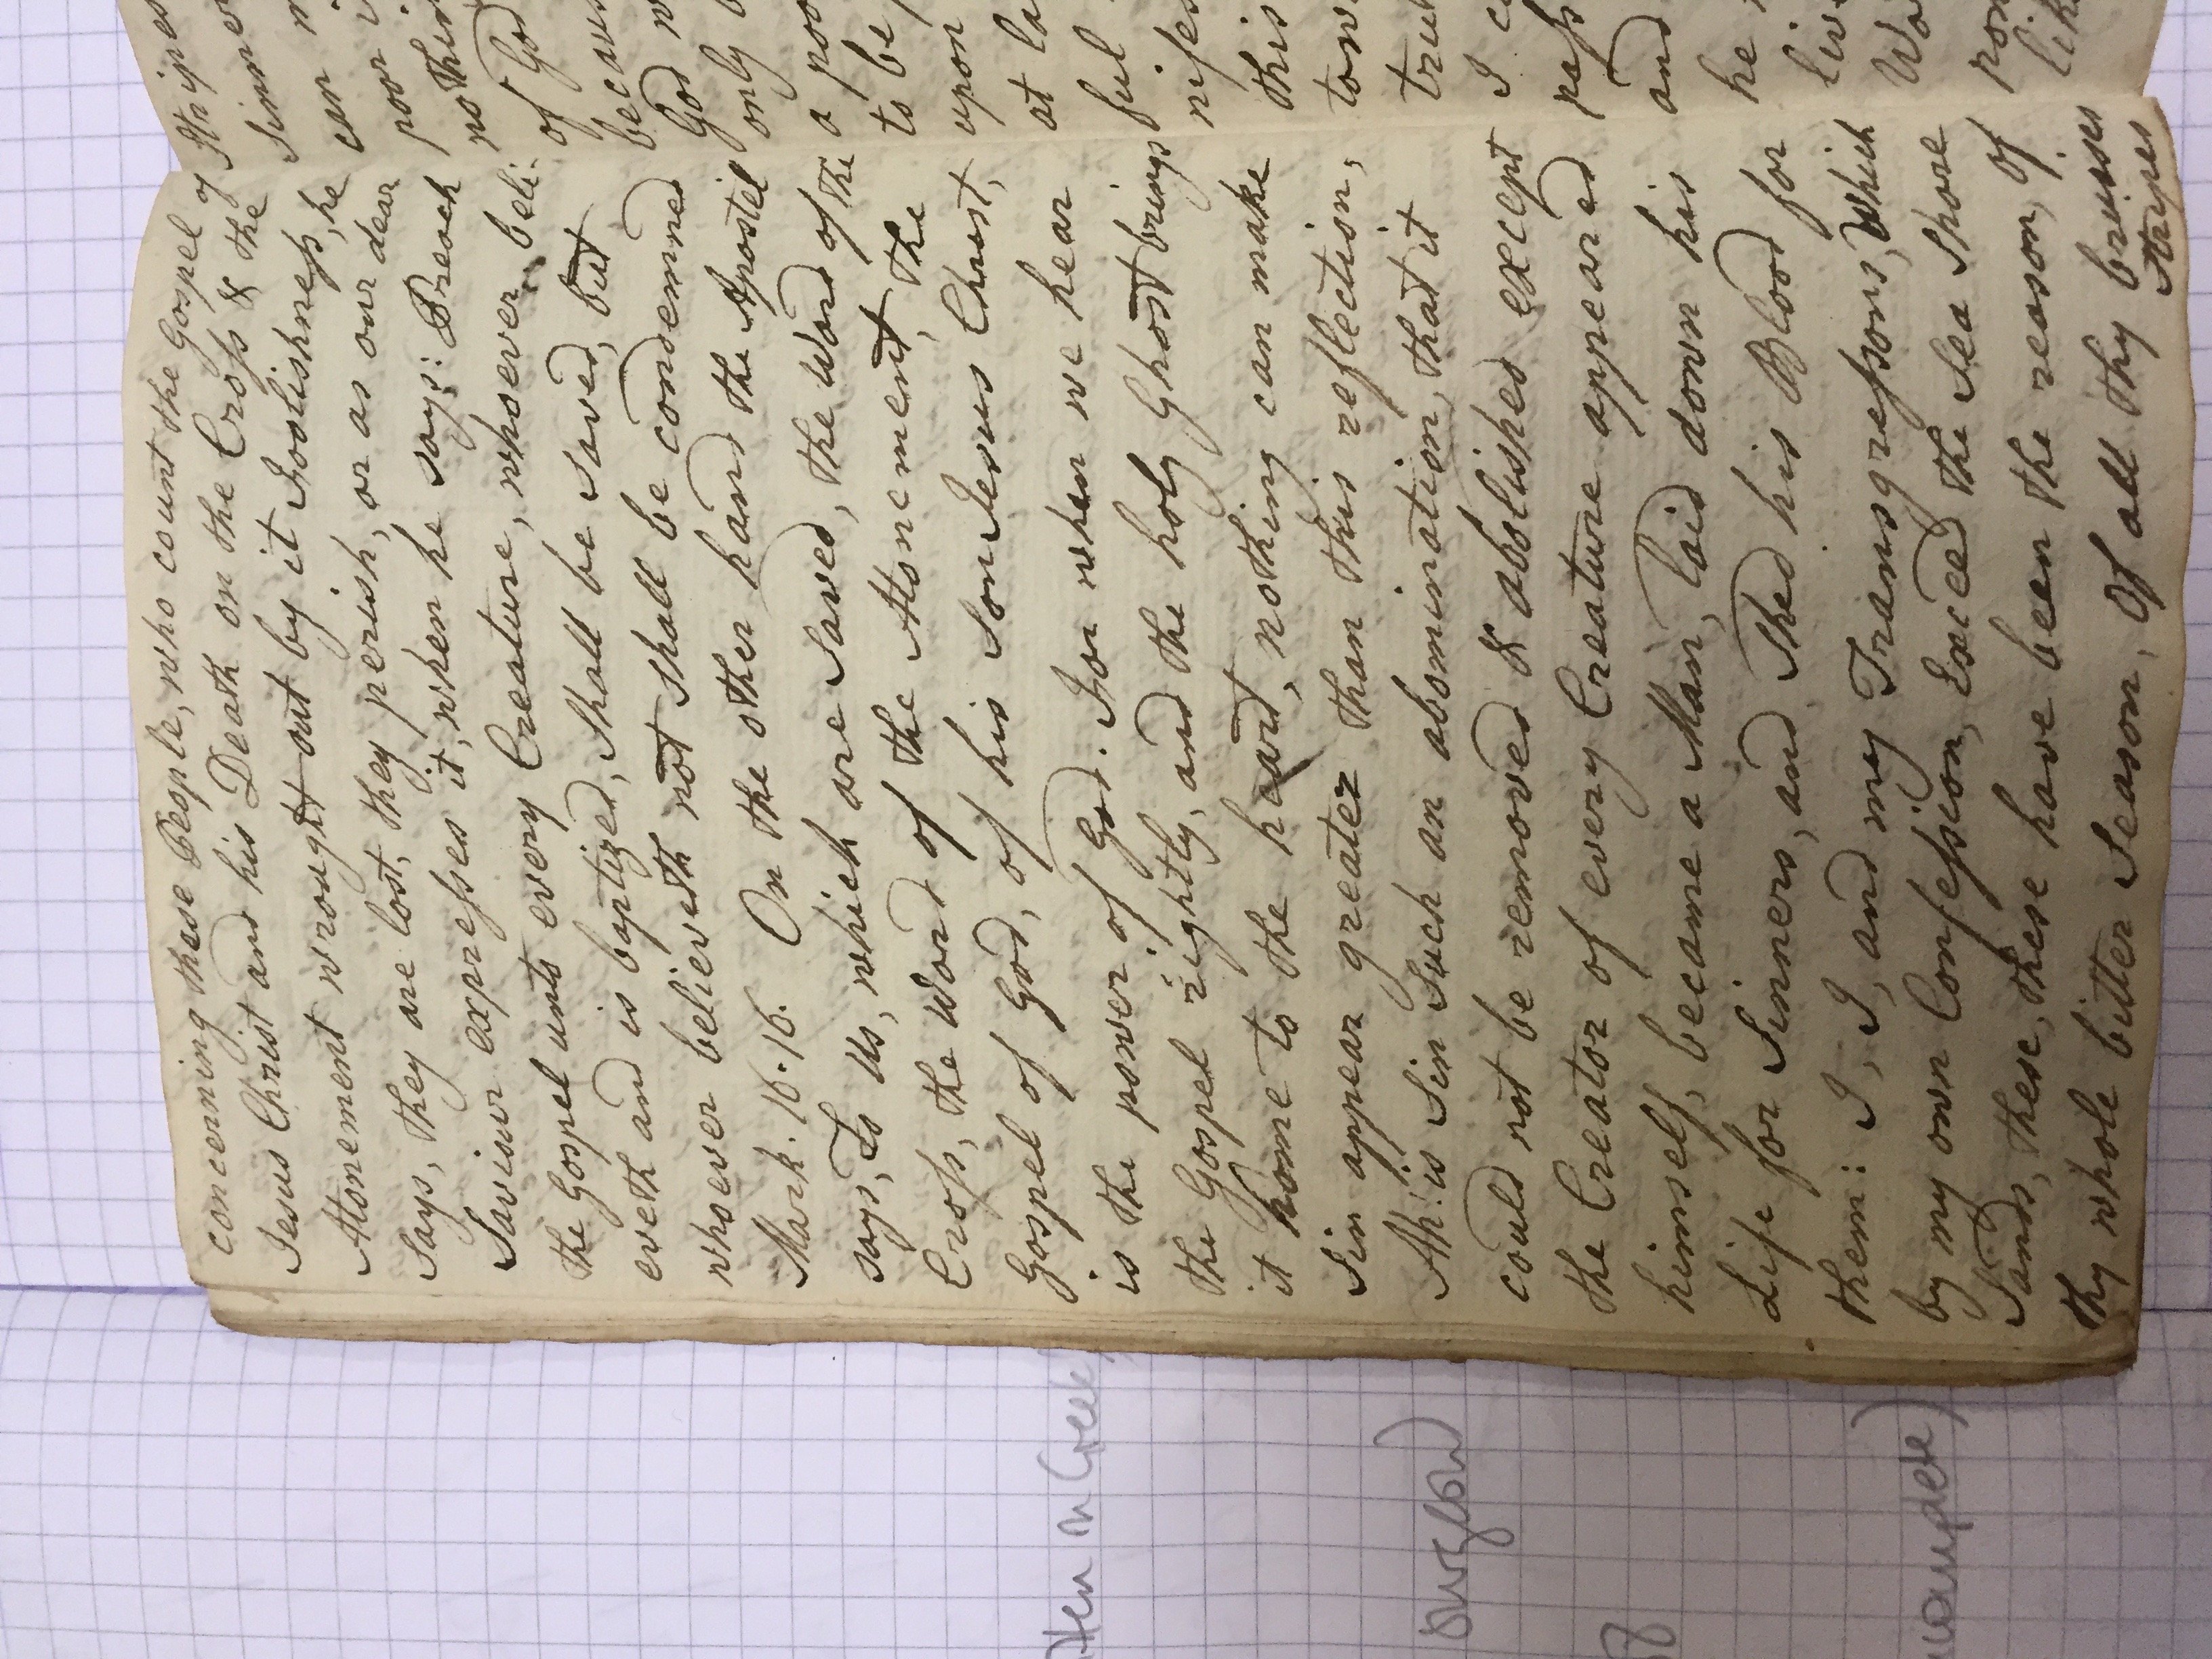 concerning these People, who count the Gospel of
Jesus Christ and his Death on the Cross & the
Atonement wrought out by it Foolishness, he
says, they are lost, they perish, or as our dear
Saviour expresses it, when he says: Preach
the Gospel unto every Creature, whoever beli-
eveth and is baptized, shall be saved, but
whoever believeth not shall be condemned
Mark. 16.16. On the other hand the Apostel
says, To us, which are saved, the Word of the
Cross, the Word of the Atonement, the
Gospel of God, of his Son Jesus Christ,
is the power of God. For when we hear
the Gospel rightly, and the holy Ghost brings
it home to the heart, nothing can make
Sin appear greater than this reflection,
Ah! is Sin such an abomination, that it
could not be removed & abolished except
the Creator of every Creature appeared
himself, became a Man, laid down his
Life for Sinners, and shed his Blood for
them: I, I, and my Transgressons, which
by my own Confession, Exceed the Sea Shore
Sands, these, these have been the reason, Of
thy whole bitter Season, Of all thy bruises
Stripes
Stripes
Sinner
can
poor
nothin
of God
becaus
God w
only b
a poo
to be
upon
at la
ful
nifes
this
tow
trul
I c
pass
and
he
liv
Wo
non
lik